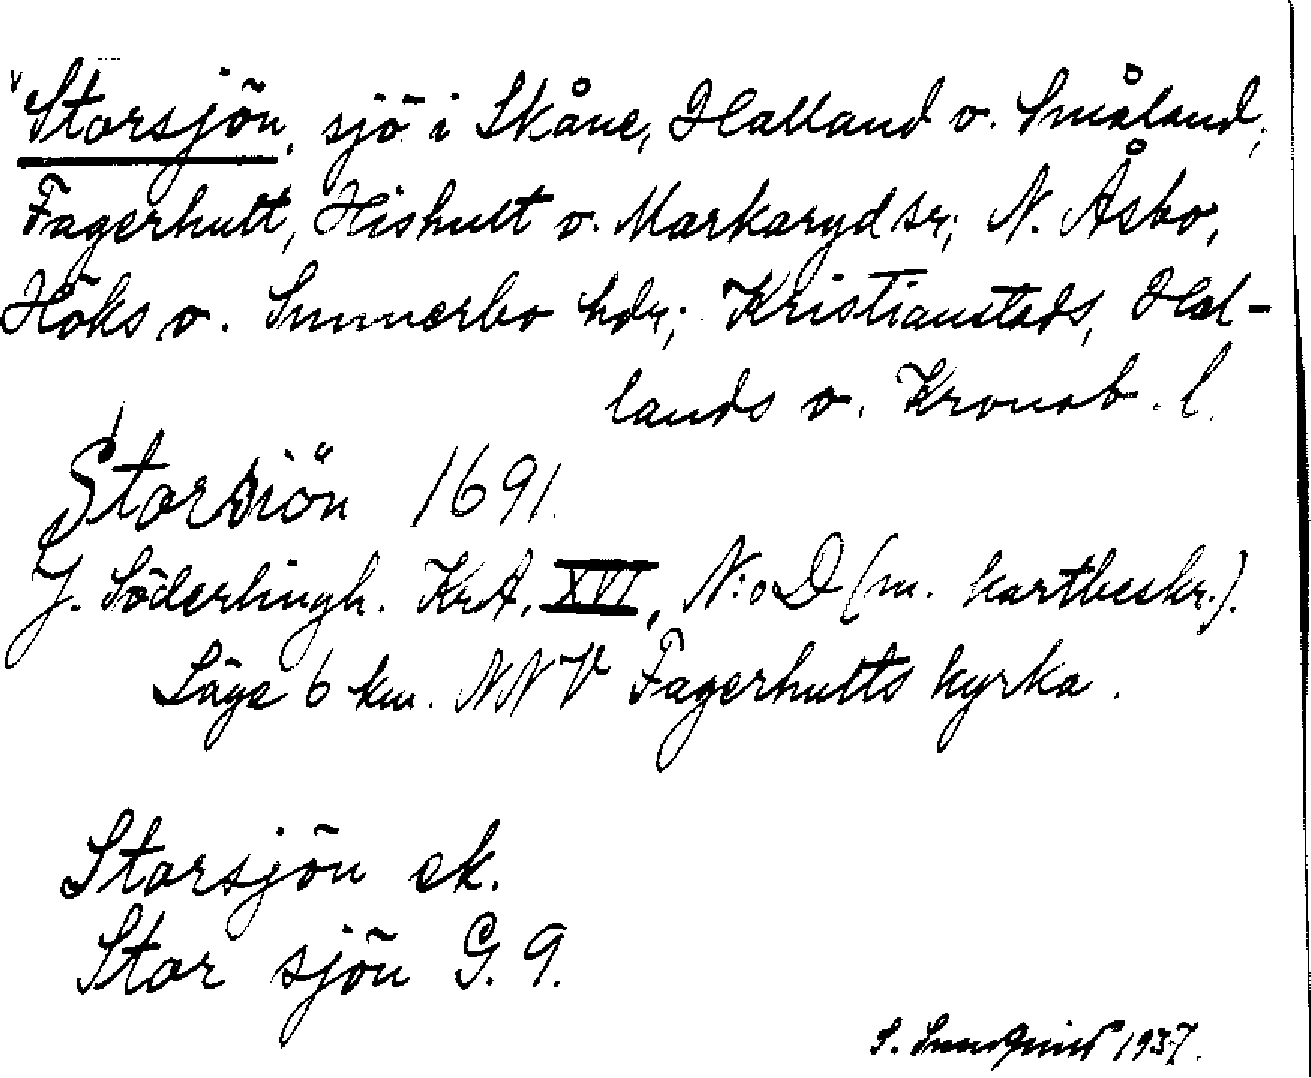 Storsjön, sjö i Skåne, Halland o. Småland;
Fagerhult, Hishult o. Markaryd sr; N. Åsbo,
Höks o. Sunnerbo hdr; Kristianstads, Hal-
lands o. Kronob. l.
Storsiön 1691.
J. Söderlingh. KrA, XVI, N:o D (m. kartbeskr.).
Läge 6 km. NNV Fagerhults kyrka.
Storsjön ek.
Stor sjön G. 9.
S. 1937.